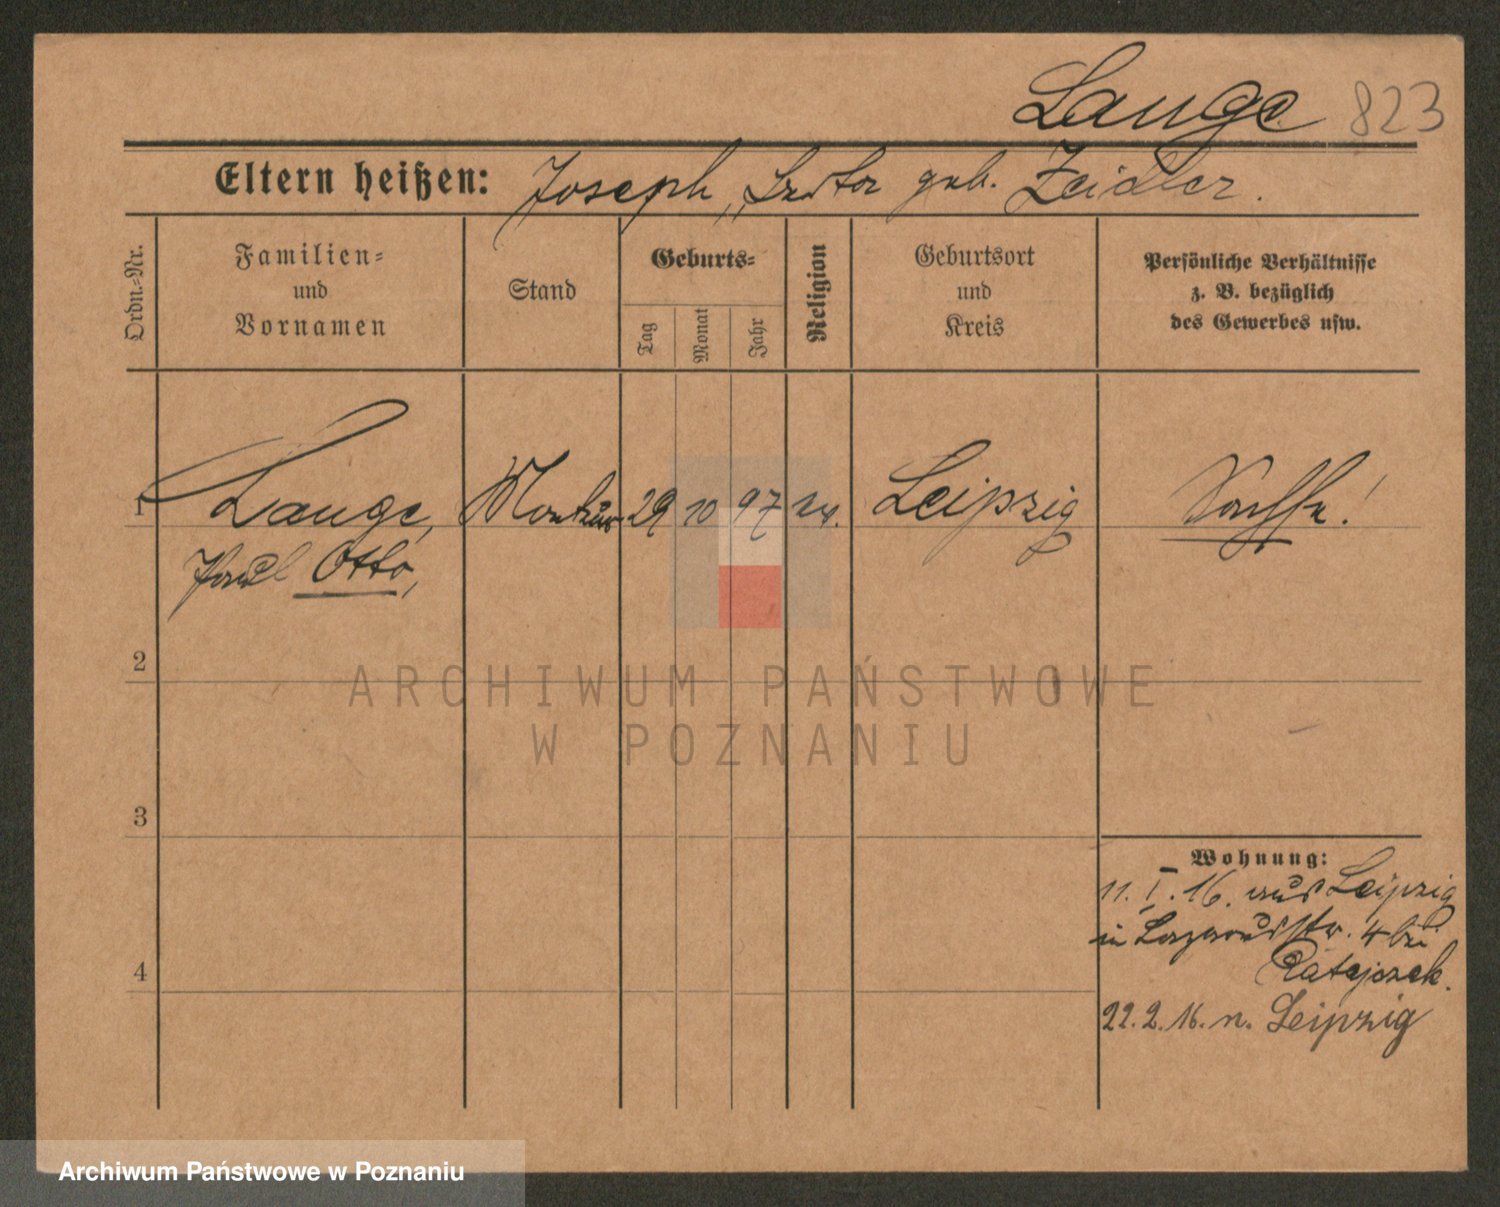 Lange 823
Eltern heißen: Joseph, geb. Zeidler.
Ordn.-Nr.
Familien-
und
Vornamen
Stand
Geburts-
Tag
Monat
Jahr
Religion
Geburtsort
und
Kreis
Persönliche Verhältnisse
z. B. bezüglich
des Gewerbes usw.
1 Lange, Monteur 29 10 97 ev. Leipzig Sachse!
Paul Otto,
2
3
4
Wohnung:
11. I. 16. aus Leipzig
in Lazarusstr. 4 bei
Ratajczak.
22. 2. 16. n. Leipzig
ARCHIWUM PAŃSTWOWE
W POZNANIU
Archiwum Państwowe w Poznaniu